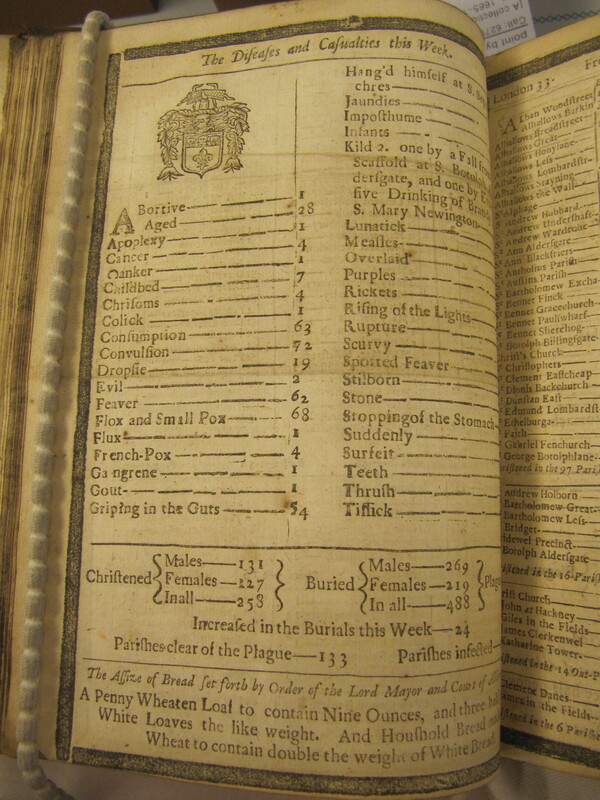 The Diſeaſes and Caſualties this Week.
Abortive 1
Aged 28
Apoplexy 1
Cancer 4
Canker 1
Childbed 7
Chriſoms 4
Colick 1
Conſumption 63
Convulſion 72
Dropſie 19
Evil 2
Feaver 62
Flox and Small Pox 68
Flux 1
French-Pox 4
Gangrene 1
Gout 1
Griping in the Guts 54
Hang'd himſelf at S.
chres
Jaundies
Impoſthume
Infants
Kild 2. one by a Fall from
Scaffold at S. Botolph
derſgate, and one by
ſive Drinking of Brandy
S. Mary Newington
Lunatick
Meaſles
Overlaid
Purples
Rickets
Riſing of the Lights
Rupture
Scurvy
Spotted Feaver
Stilborn
Stone
Stopping of the Stomach
Suddenly
Surfeit
Teeth
Thruſh
Tiſſick
Chriſtened Males 131 Females 127 In all 258
Buried Males 269 Females 219 In all 488 Plague
Increaſed in the Burials this Week 24
Pariſhes clear of the Plague 133 Pariſhes infected
The Aſſize of Bread ſet forth by Order of the Lord Mayor and Court of
A Penny Wheaten Loaf to contain Nine Ounces, and three
White Loaves the like weight. And Houſhold Bread
Wheat to contain double the weight of White Bread
London 33.
Alban Woodſtreet
Alhallows Barkin
Alhallows Breadſtreet
Alhallows Great
Alhallows Honylane
Alhallows Leſs
Alhallows Lombardſtr
Alhallows Stayning
Alhallows the Wall
S Alphage
S Andrew Hubbard
S Andrew Underſhaft
S Andrew Wardrobe
S Ann Alderſgate
S Ann Blackfriers
S Antholins Pariſh
S Auſtins Pariſh
S Bartholomew Excha
S Bennet Finck
S Bennet Gracechurch
S Bennet Paulſwharf
S Bennet Sherehog
S Botolph Billingſgate
Chriſt's Church
S Chriſtophers
S Clement Eaſtcheap
S Dionis Backchurch
S Dunſtan Eaſt
S Edmund Lombardſt
S Ethelburga
S Faith
S Gabriel Fenchurch
S George Botolphlane
Chriſtned in the 97 Pariſ
Andrew Holborn
Bartholomew Great
Bartholomew Leſs
Bridget
Bridewel Precinct
Botolph Alderſgate
Chriſtned in the 16 Pariſh
Chriſt Church
John at Hackney
Giles in the Fields
James Clerkenwel
Katharine Tower
Chriſtned in the 14 Out-P
Clement Danes
James in the Fields
Chriſtned in the 6 Pariſh